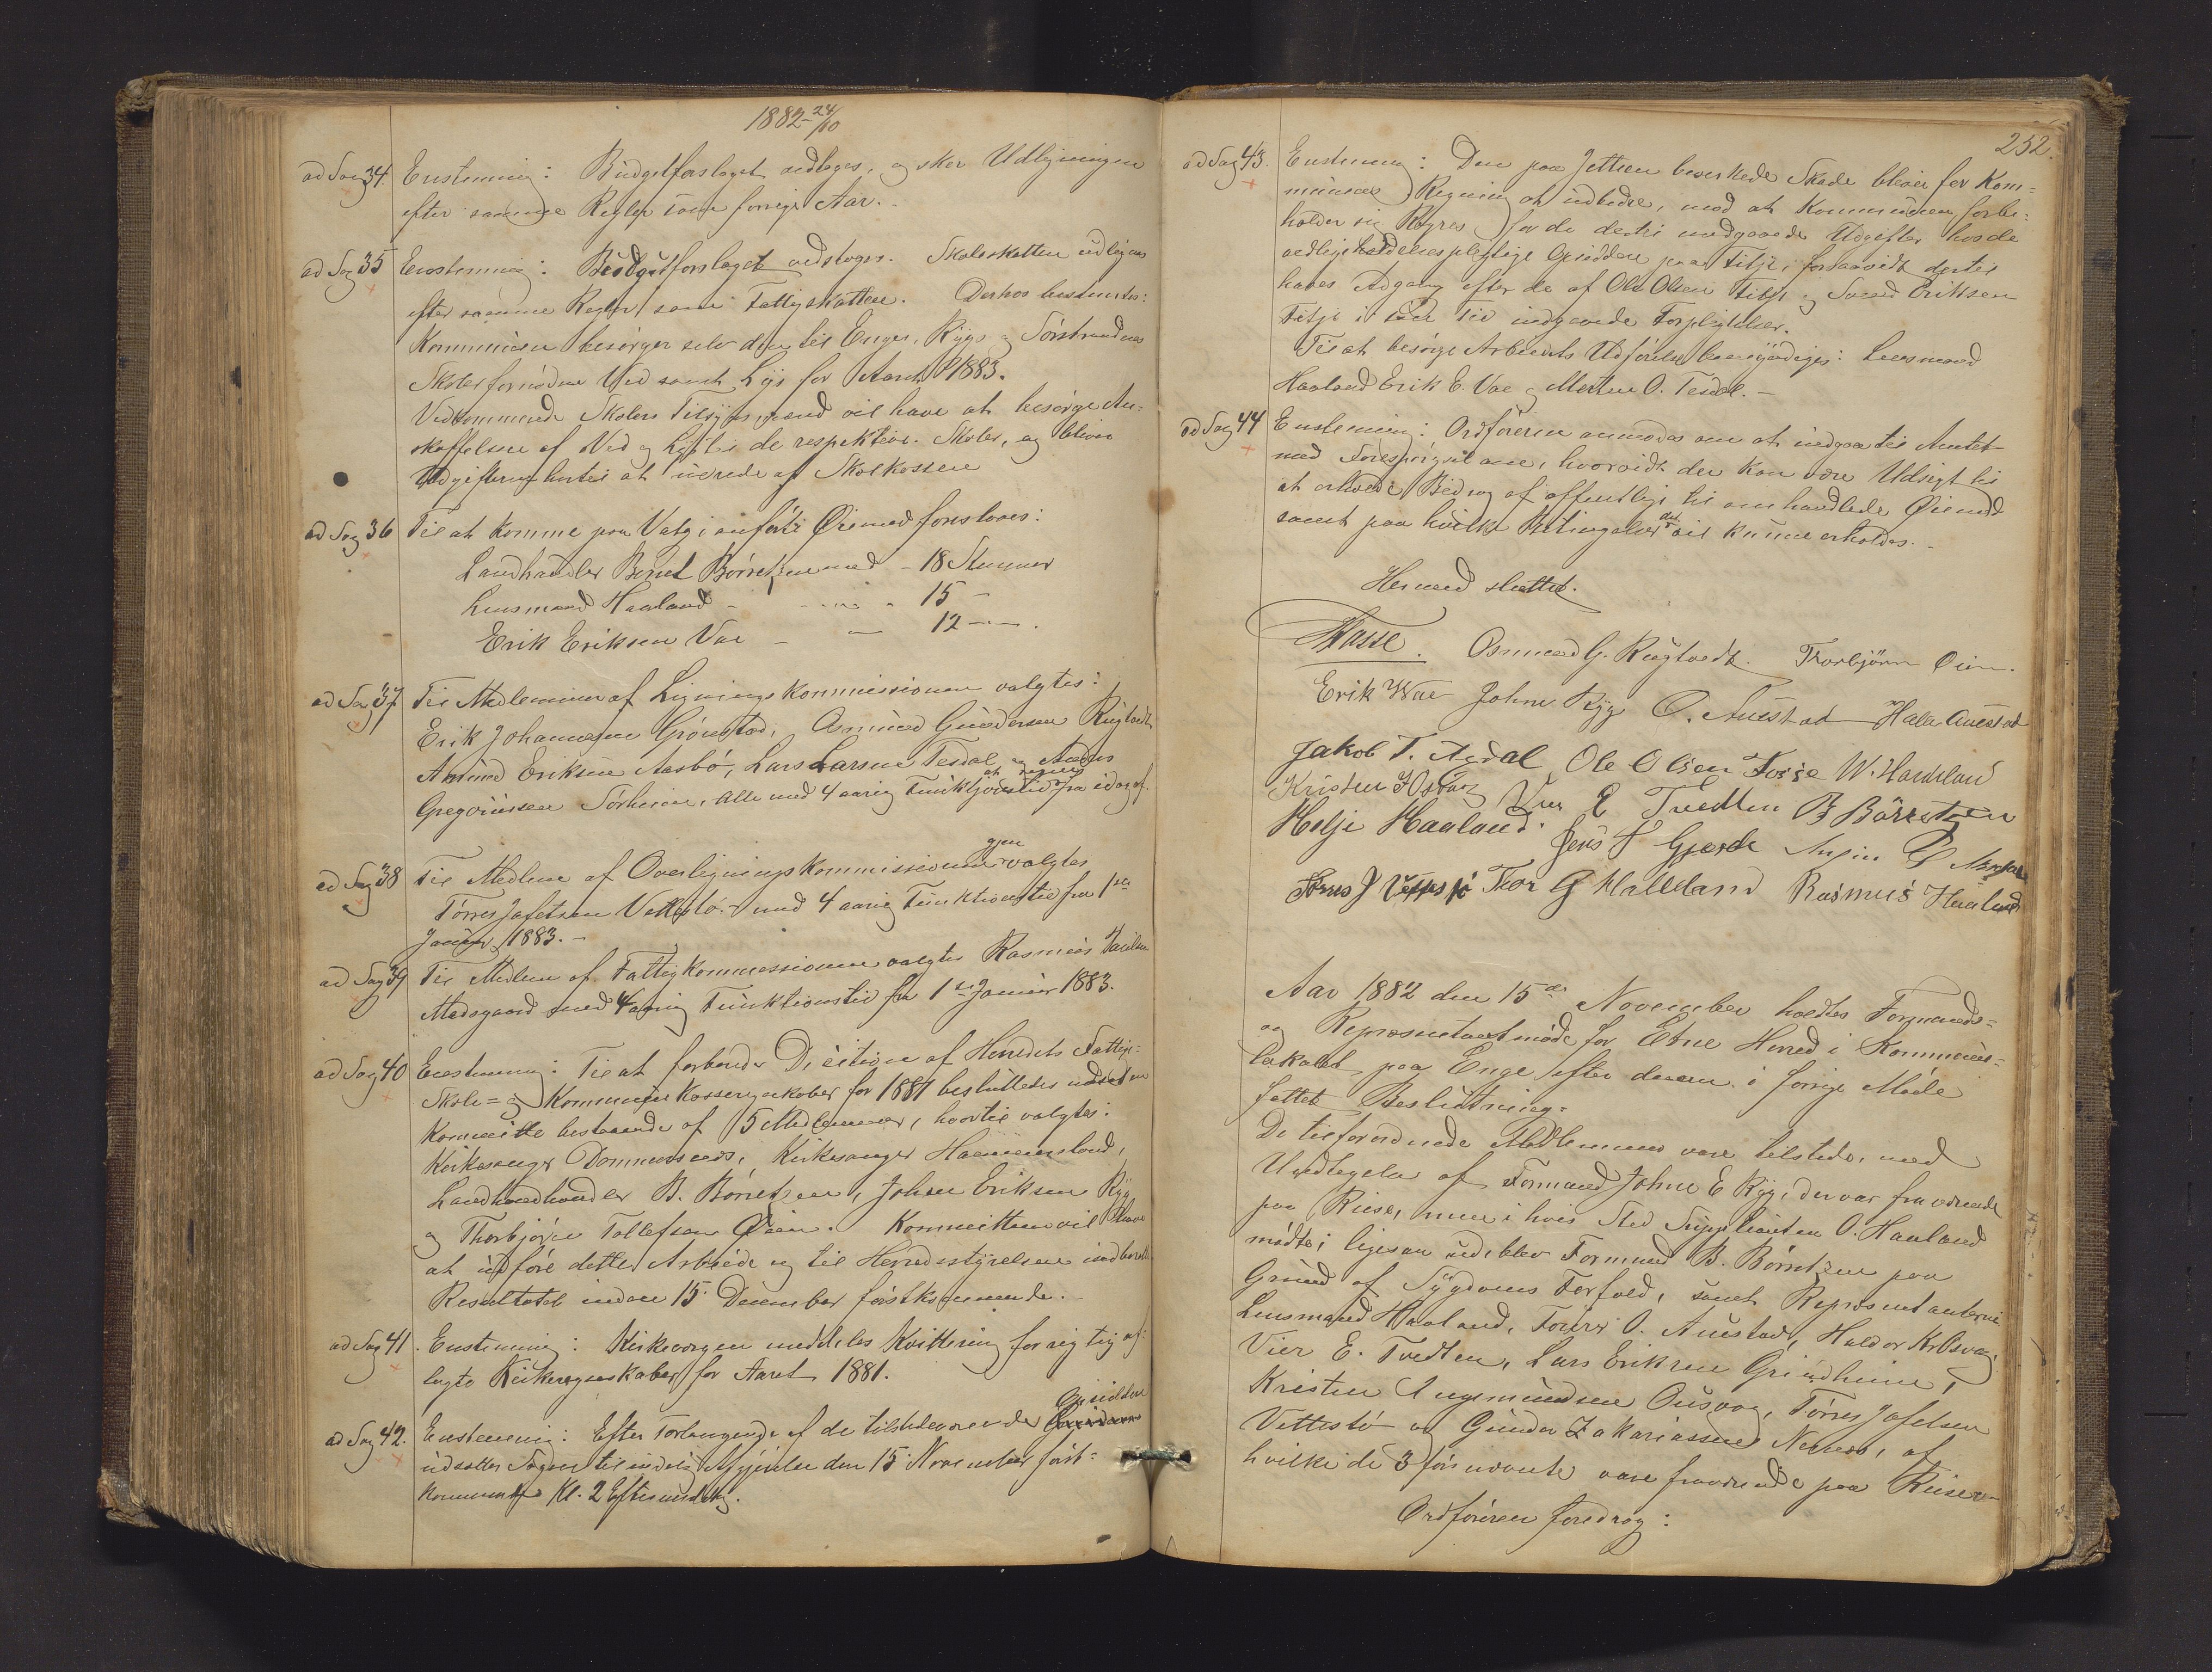 1882 - 24/10
ad Sag 34. Enstemmig: Budgetforslaget vedtages, og sker Udligningen
efter samme Regler som forrige Aar.
ad Sag 35 Enstemmig: Budgetforslaget vedtages. Skoleskatten udlignes
efter samme Regler som Fattigskatten. Derhos bestemtes:
Kommunen besørger selv den til Enges, Rygs og Sørstrandens
Skoler fornødne Ved samt Lys for Aaret 1883.
Vedkommende Skolers Tilsynsmænd vil have at besørge An-
skaffelsen af Ved og Lys til de respektive Skoler, og bliver
Udgifterne hertil at udrede af Skolekassen
ad Sag 36 Til at komme paa Valg i anførte Øiemed foresloges:
Landhandler Bernt Børretzen med - 18 Stemmer
Lensmand Haaland - 15 -
Erik Eriksen Vae - 12 -
ad Sag 37 Til Medlemmer af Ligningskommissionen valgtes:
Erik Johannesen Grønstad, Osmund Gundersen Rugtvedt,
Amund Eriksen Aasbø, Lars Larsen Tesdal, og Anders
Gregoriussen Sørheim, alle med 4 aarig Funktionstid at regne fra idag af.
ad Sag 38 Til Medlem af Overligningskommissionen gjenvalgtes
Tørres Jafetsen Vettestø - med 4 aarig Funktionstid fra 1ste
Januar 1883. -
ad Sag 39 Til Medlem af Fattigkommissionen valgtes Rasmus
Madsgaard med 4 aarig Funktionstid fra 1ste Januar 1883.
ad Sag 40 Enstemmig: Til at forberede Decision af Herredets Fattig-
Skole- og Kommunekasseregnskaber for 1881 besluttedes udsat en
Kommitte bestaaende af 5 Medlemmer, hvortil valgtes:
Kirkesanger Dommersnes, Kirkesanger
Landhandler B. Børretzen, Johne Eriksen Ryg
og Thorbjørn Tollefsen Øien. Kommitteen vil have
at udføre dette Arbeide og til Herredsstyrelsen indberette
Resultatet inden 15 December førstkommende. -
ad Sag 41. Enstemmig: Kirkevergen meddeles Kvittering for rigtig af-
lagte Kirkeregnskaber for Aaret 1881.
ad Sag 42. Enstemmig: Efter Forlangende af de tilstedeværende Opsiddere
udsattes Sagen til endelig Afgjørelse den 15 November først-
kommende Kl. 2 Eftermiddag.
252.
ad Sag 43. Enstemmig: Den paa Jetteen bevirkede Skade bliver for Kom-
munens Regning at udbedre, mod at Kommunen forbe-
holder sig Regres for de dertil medgaaede Udgifter hos de
vedligeholdelsespligtige Opsiddere paa Fitje, forsaavidt dertil
haves Adgang efter de af Ole Olsen Fitje og Svend Eriksen
Fitje i sin Tid indgaaede Forpligtelser.
Til at besørge Arbeidets Udførelse bemyndiges: Lensmand
Haaland Erik E. Vae og Morten O. Tesdal. -
ad Sag 44 Enstemmig: Ordføreren anmodes om at indgaa til Amtet
med Forespørgsel om, hvorvidt der kan være Udsigt til
at erholde Bidrag af offentlige til omhandlede Øiemed
samt paa hvilke Betingelser det vil kunne erholdes. -
Hermed sluttet.
Osmund G. Rugtvedt. Thorbjørn Øien.
Erik Wae Johne Ryg O. Austad
Jakob T. Ole Olsen Fosse W. Haaland
Kristen E Tvedten B Børretzen
Helje Haaland. Jens J Gjerde
Tørres J Vettestø Thor G Halleland Rasmus Haaland
Aar 1882 den 15de November holdtes Formands-
og Repræsentantmøde for Etne Herred i Kommune-
lokalet paa Enge efter derom i forrige Møde
fattet Beslutning.
De tilforordnede Medlemmer vare tilstede, med
Undtagelse af Formand Johne E Ryg, der var fraværende
paa Reise, men i hvis Sted Suppleanten O. Haaland
mødte; ligesaa udeblev Formand B. Børretzen paa
Grund af Sygdoms Forfald, samt Repræsentanterne
Lensmand Haaland, Tørres O. Austad, Haldor K.
Vier E. Tvedten, Lars Eriksen Grindheim,
Kristen Ingemundsen Tørres Jafetsen
Vettestø og Gunder Zakariassen af
hvilke de 3 førnævnte vare fraværende paa Reiser. -
Ordføreren foredrog: